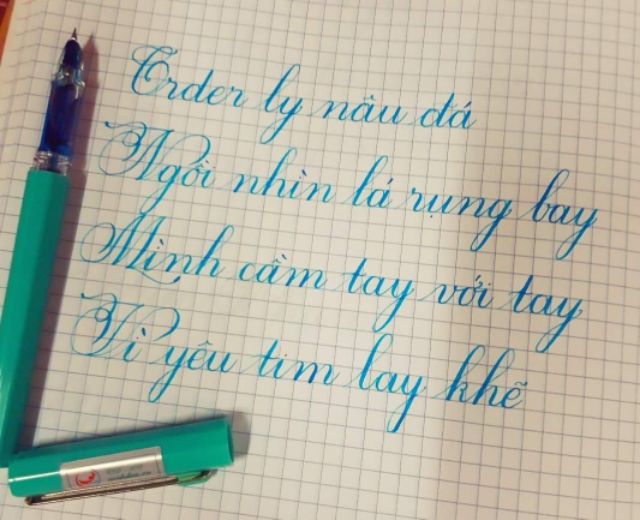 Order ly nâu đá
Ngồi nhìn lá rụng bay
Mình cầm tay với tay
Vì yêu tim lay khẽ